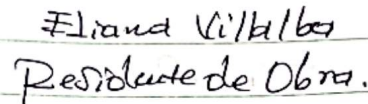 Eliana Villalba
Residente de Obra.